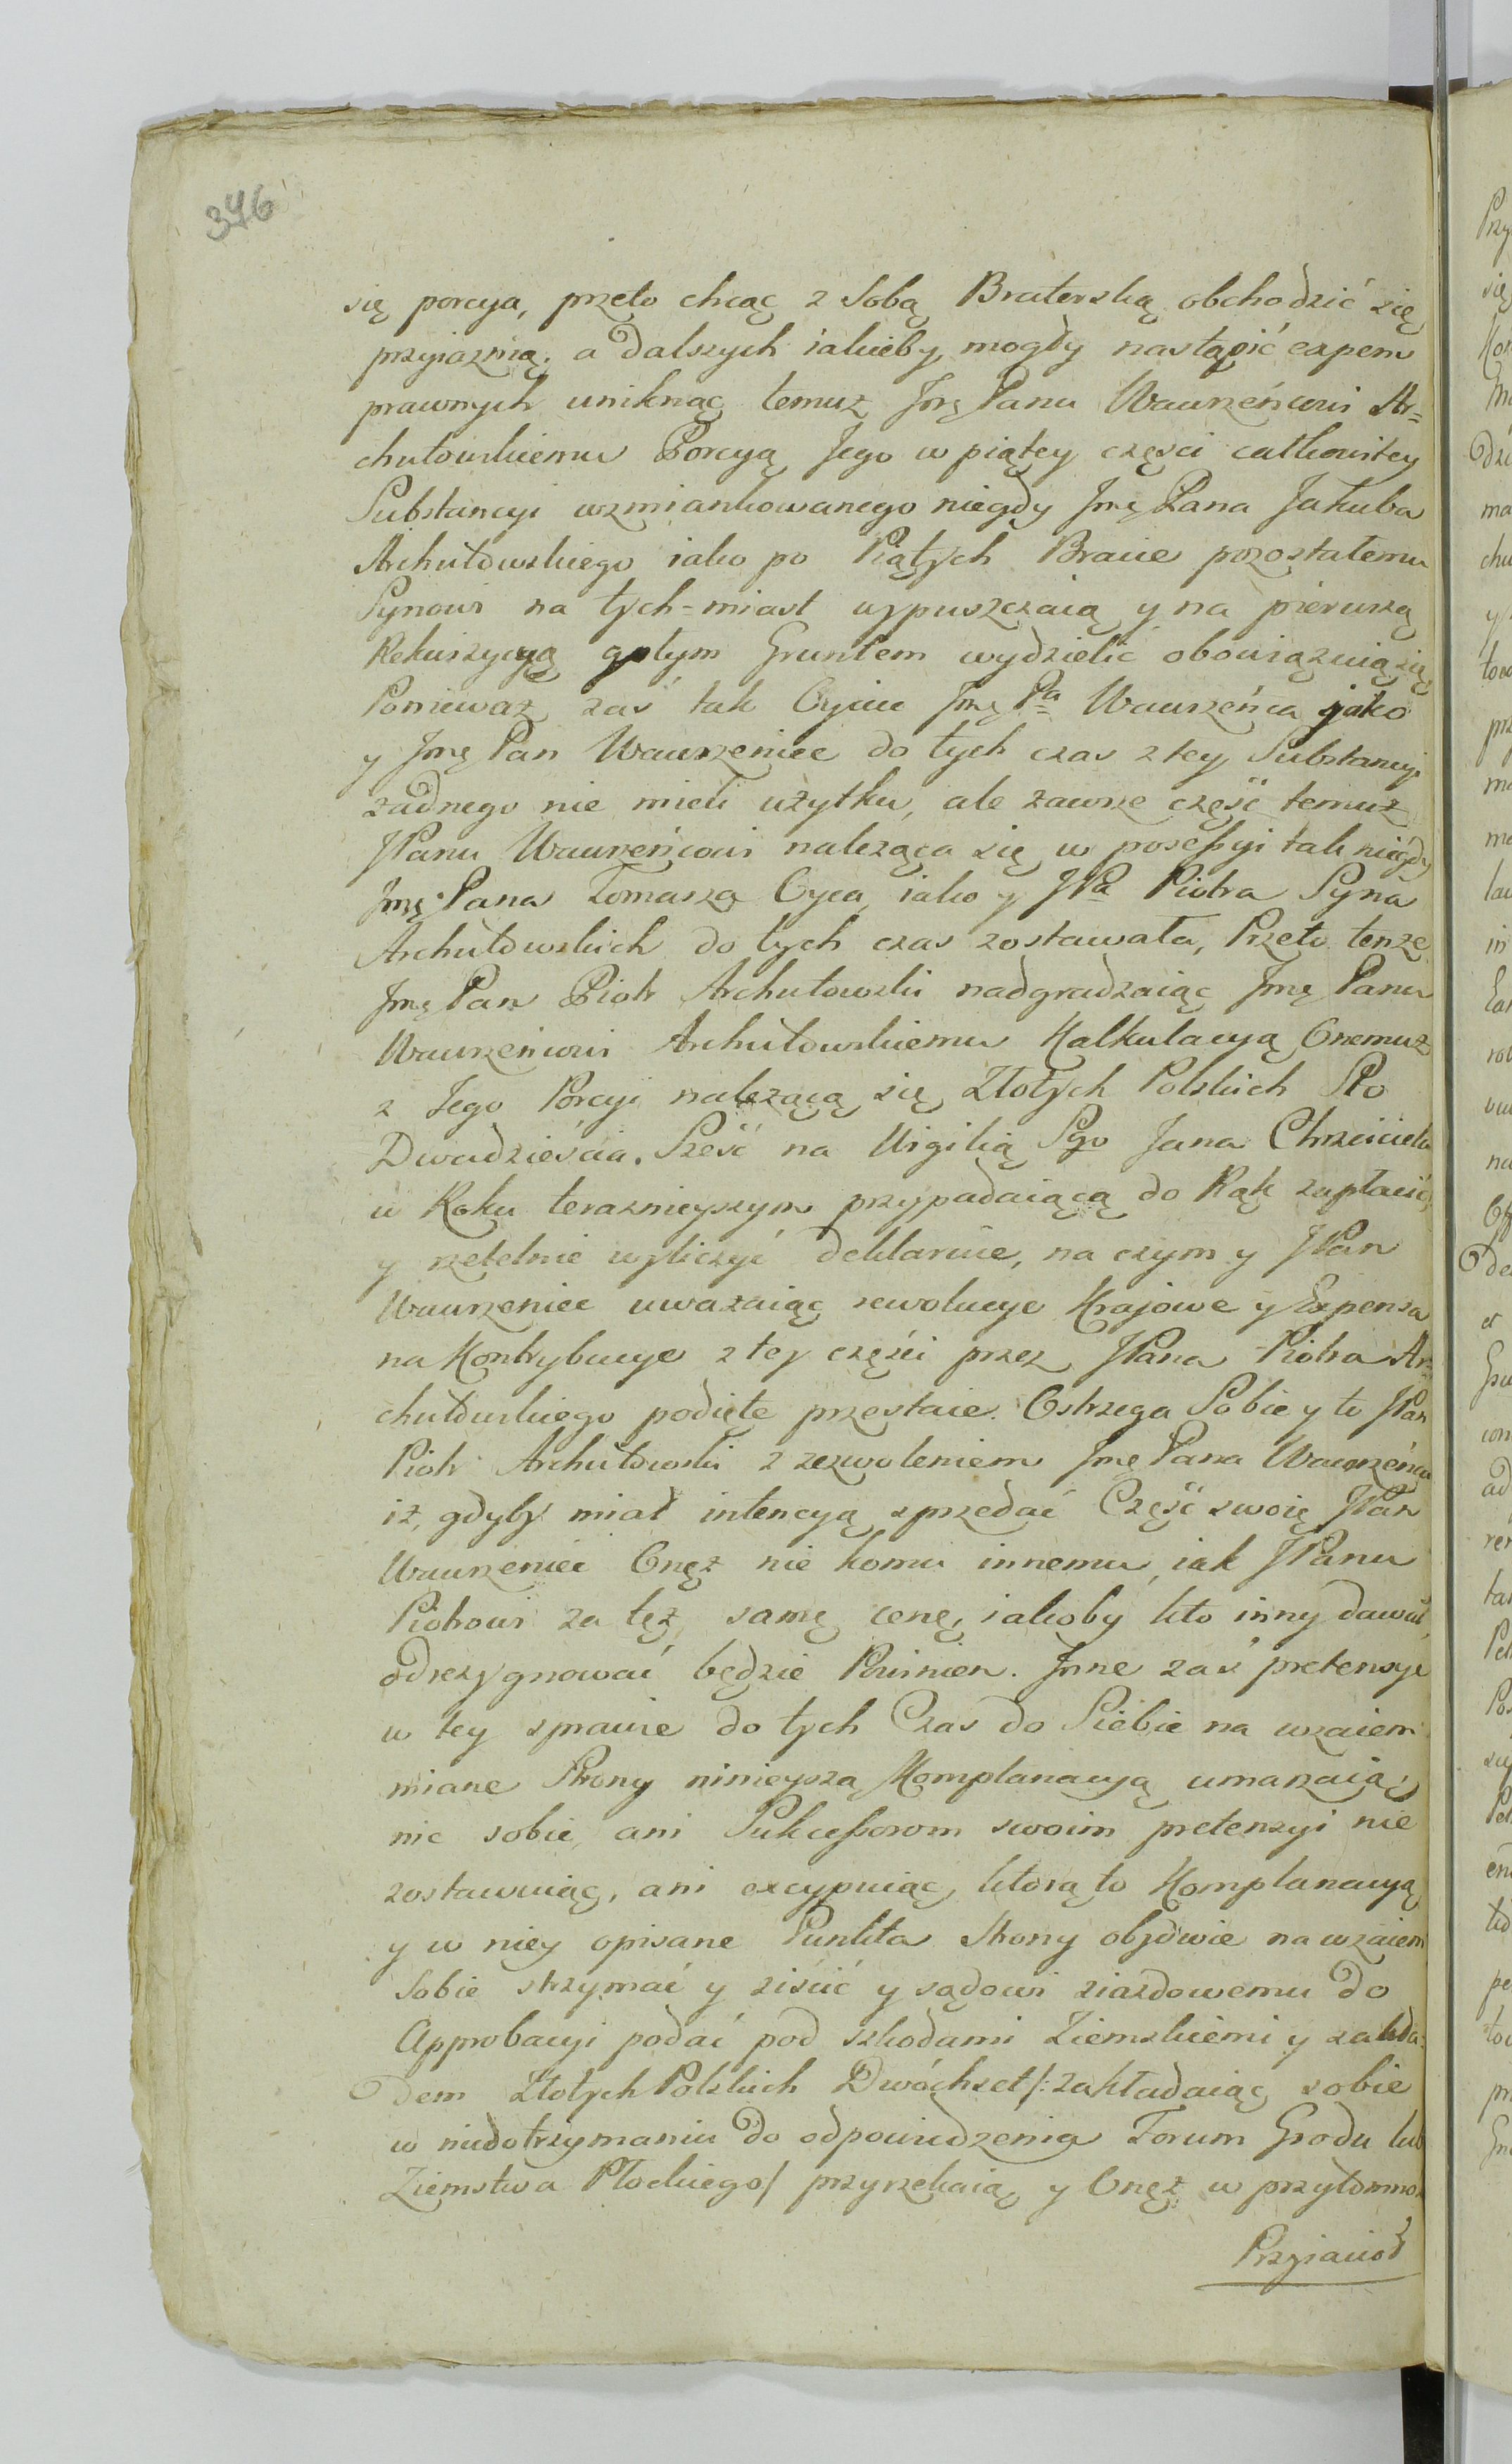 376
się porcya, przeto chcąc z Sobą Braterską obchodzić się
przyiaznią, a dalszych iakieby mogły nastąpić expens
prawnych uniknąć temuż Jmę Panu Wawrzeńcowi Ar=
chutowskiemu Porcyą Jego w piątey części całkowitey
Substancyi wzmiankowanego niegdy Jmę Pana Jakuba
Archutowskiego iako po Piątych Bracie pozostałemu
Synowi na tych=miast wypuszczaią y na pierwszą
Rekwizycyą gołym Gruntem wydzielić obowiązuią się
Ponieważ zaś tak Oyciec Jmę Pa Wawrzeńca jako
y Jmę Pan Wawrzeniec do tych czas z tey Substancyi
żadnego nie mieli użytku, ale zawsze część temuż
JPanu Wawrzeńcowi naleząca się w possessyi tak niegdy
Jmę Pana Tomasza Oyca, iako y JPa Piotra Syna
Archutowskich do tych czas zostawała, Przeto tenże
Jmę Pan Piotr Archutowski nadgradzaiąc Jmę Panu
Wawrzeńcowi Archutowskiemu Kalkulacyą Onemuż
z Jego Porcyi nalezącą się Złotych Polskich Sto
Dwadzieścia Sześć na Wigilią Sgo Jana Chrzciciela
w Roku teraznieyszym przypadaiącą do Rąk zapłacić
y rzetelnie wyliczyć deklaruie, na czym y JPan
Wawrzeniec uważaiąc rewolucye Krajowe y Expensa
na Kontrybucye z tey części przez JPana Piotra Ar=
chutowskiego podięte przestaie. Ostrzega Sobie y to JPan
Piotr Archutowski z zezwoleniem Jmę Pana Wawrzeńca
iż, gdyby miał intencyą sprzedać Część swoię JPan
Wawrzeniec Onęż nie komu innemu, iak JPanu
Piotrowi za tęż samę cenę, iakoby kto inny dawał,
odrezygnować będzie Powinien. Jnne zaś pretensye
w tey sprawie do tych Czas do Siebie na wzaiem
miane Strony ninieyszą Komplanacyą umarzaią,
nic sobie ani Sukcessorom swoim pretensyi nie
zostawuiąc, ani excypuiąc, którą to Komplanacyą
y w niey opisane Punkta Strony obydwie na wzaiem
Sobie strzymać y ziścić y sądowi ziazdowemu do
Approbacyi podać pod szkodami Ziemskiemi y zakła=
dem Złotych Polskich Dwóchset /: zakładaiąc sobie
w niedotrzymaniu do odpowiedzenia Forum Grodu lub
Ziemstwa Płockiego/ przyrzekaią y Onęż w przytomno=
Przyiaciół